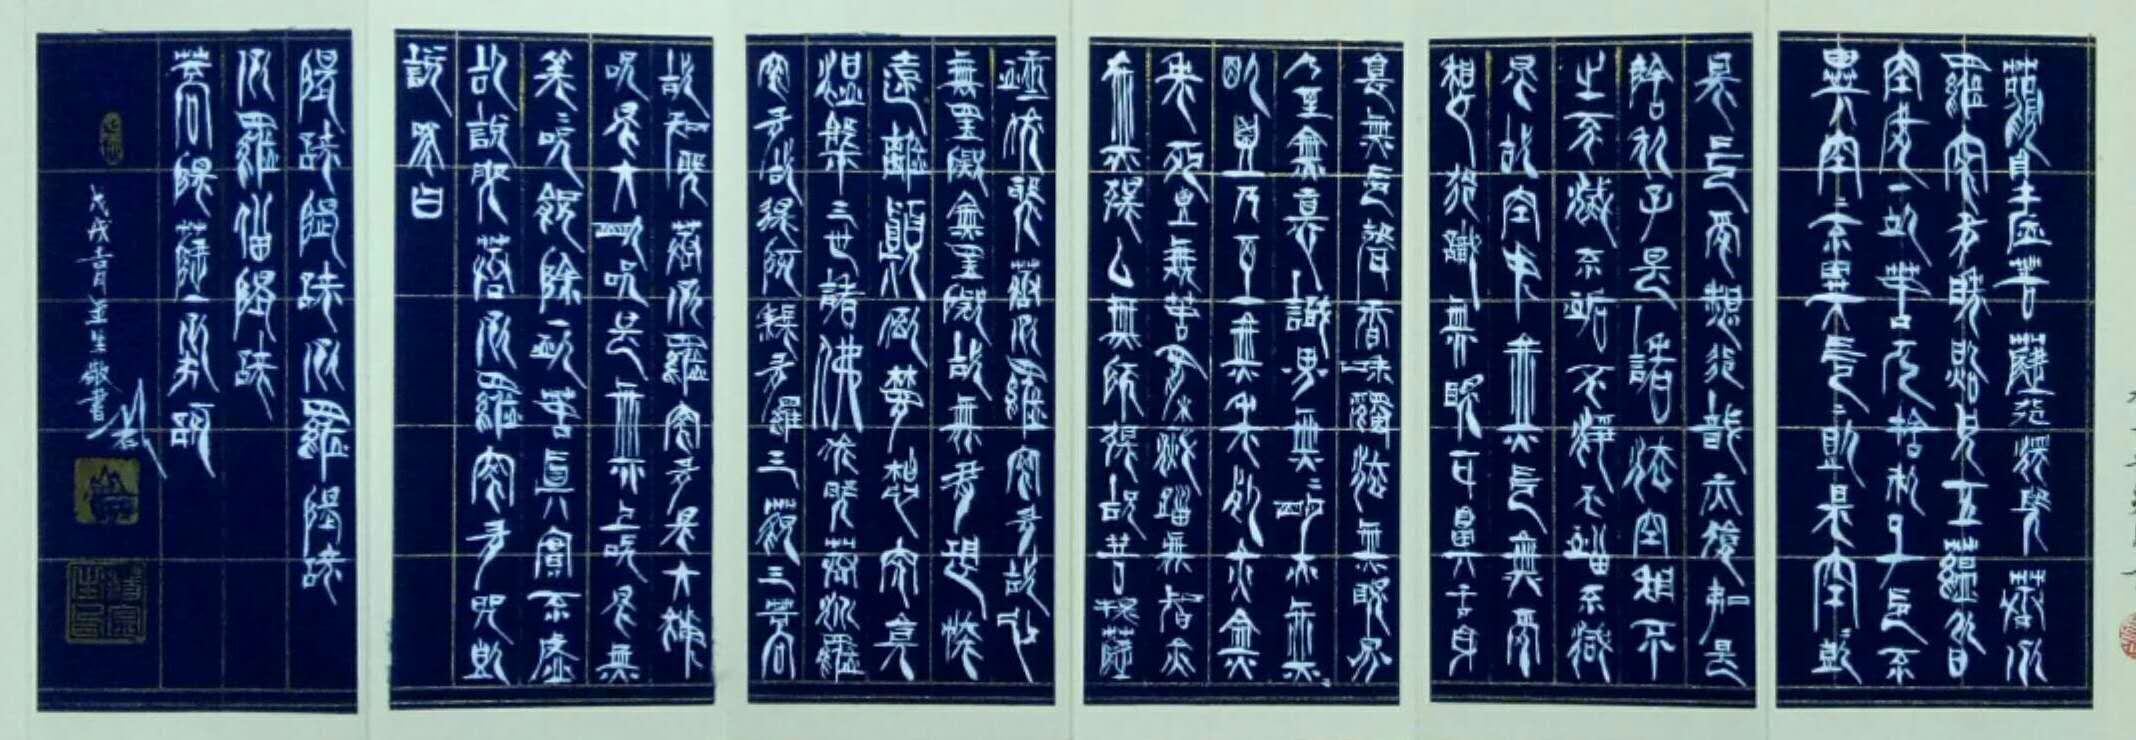 觀自在菩薩行深般若波
羅蜜多時照見五蘊皆
空度一切苦厄舍利子色不
異空空不異色色即是空空
即是色受想行識亦復如是
舍利子是諸法空相不
生不滅不垢不淨不增不減
是故空中無色無受
想行識無眼耳鼻舌身
意無色聲香味觸法無眼界
乃至無意識界無無明亦無無
明盡乃至無老死亦無
老死盡無苦集滅道無智亦
無得以無所得故菩提薩
埵依般若波羅蜜多故心
無罣礙無罣礙故無有恐怖
遠離顛倒夢想究竟
涅槃三世諸佛依般若波羅
蜜多故得阿耨多羅三藐三菩
提故知般若波羅蜜多是大神
咒是大明咒是無上咒是無
等等咒能除一切苦真實不虛
故說般若波羅蜜多咒即
說咒曰
揭諦揭諦波羅揭諦
波羅僧揭諦
菩提薩婆訶
戊戌
敬書